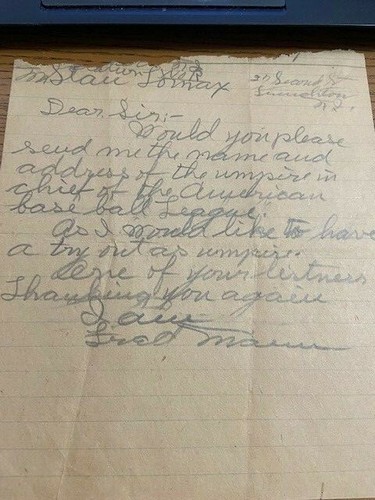 Mr Stan Lomax
Dear Sir;-
Would you please
send me the name and
address of the umpire in
chief of the American
base ball League.
As I would like to have
a try out as umpire.
One of your listners
Thanking you again
I am
Fred